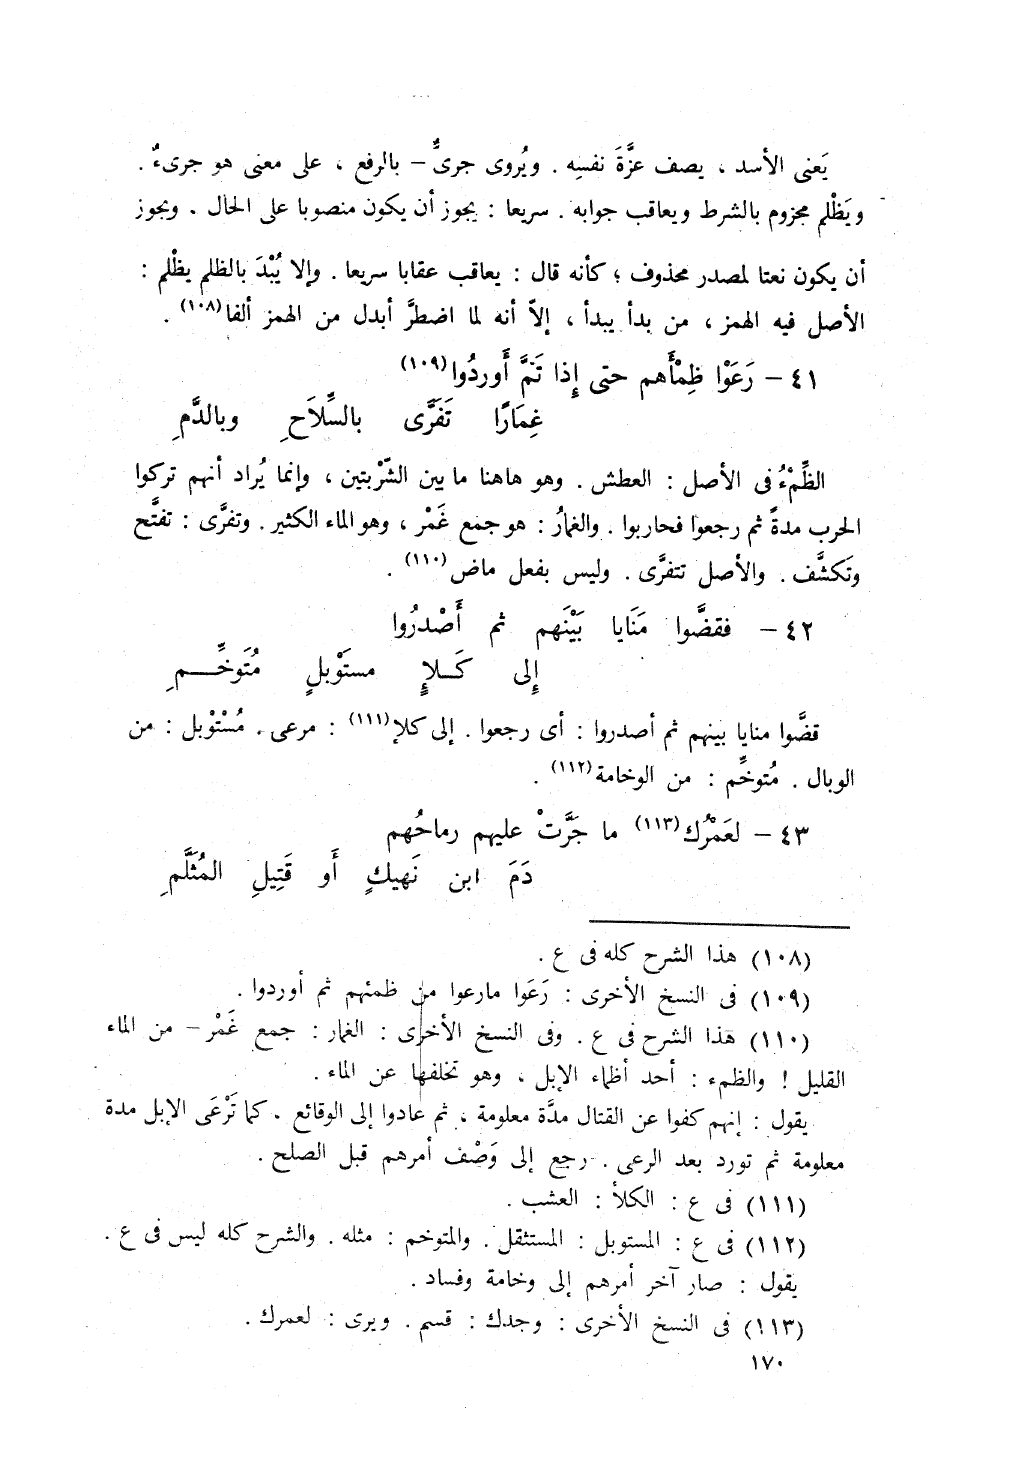 يَعنى الأسد ، يصف عزَّةَ نفسِه . ويُروى جرىءٌ – بالرفع ، على معنى هو جرىءٌ .
ويَظْلم مجزوم بالشرط ويعاقب جوابه . سريعا : يجوز أن يكون منصوبا على الحال . ويجوز
أن يكون نعتا لمصدر محذوف ؛ كأنه قال : يعاقب عقابا سريعا . وإلا يُبْدَ بالظلم يظْلم :
الأصل فيه الهمز ، من بدأ يبدأ ، إلاّ أنه لما اضطرَّ أبدل من الهمز ألفا(١٠٨) .
٤١ – رَعَوْا ظِمْأَهم حتى إِذا تَمَّ أَوردُوا(١٠٩)
غِمَارًا تَفَرَّى بالسِّلاَحِ وبالدَّمِ
الظِّمْءُ فى الأصل : العطش . وهو هاهنا ما بين الشّرْبتين ، وإنما يُراد أنهم تركوا
الحرب مدةً ثم رجعوا فحاربوا . والغمارُ : هو جمع غَمْر ، وهو الماء الكثير . وتفرَّى : تفتَّح
وتَكشَّف . والأصل تتفرَّى . وليس بفعل ماض(١١٠) .
٤٢ – فقضَّوا مَنَايا بَيْنَهم ثم أَصْدرُوا
إِلى كَـلإٍ مستَوْبلٍ مُتَوخِّـمِ
قضَّوا منايا بينهم ثم أصدروا : أى رجعوا . إلى كلإ(١١١) : مرعى . مُسْتوْبل : من
الوبال . مُتوخِّم : من الوخامة(١١٢) .
٤٣ – لعَمْرُك(١١٣) ما جَرَّتْ عليهم رماحُهم
دَمَ ابن نَهيكٍ أَو قَتِيلِ المُثَلَّمِ
(١٠٨) هذا الشرح كله فى ع .
(١٠٩) فى النسخ الأخرى : رَعَوا مارعوا من ظمئهم ثم أوردوا .
(١١٠) هذا الشرح فى ع . وفى النسخ الأخرى : الغمار : جمع غَمْر – من الماء
القليل ! والظمء : أحد أظماء الإبل ، وهو تخلفها عن الماء .
يقول : إنهم كفوا عن القتال مدَّة معلومة ، ثم عادوا إلى الوقائع . كما تَرْعَى الإبل مدة
معلومة ثم تورد بعد الرعى . رجع إلى وَصْف أمرهم قبل الصلح .
(١١١) فى ع : الكلأ : العشب .
(١١٢) فى ع : المستوبل : المستثقل . والمتوخم : مثله . والشرح كله ليس فى ع .
يقول : صار آخر أمرهم إلى وخامة وفساد .
(١١٣) فى النسخ الأخرى : وجدك : قسم . ويرى : لعمرك .
١٧٠